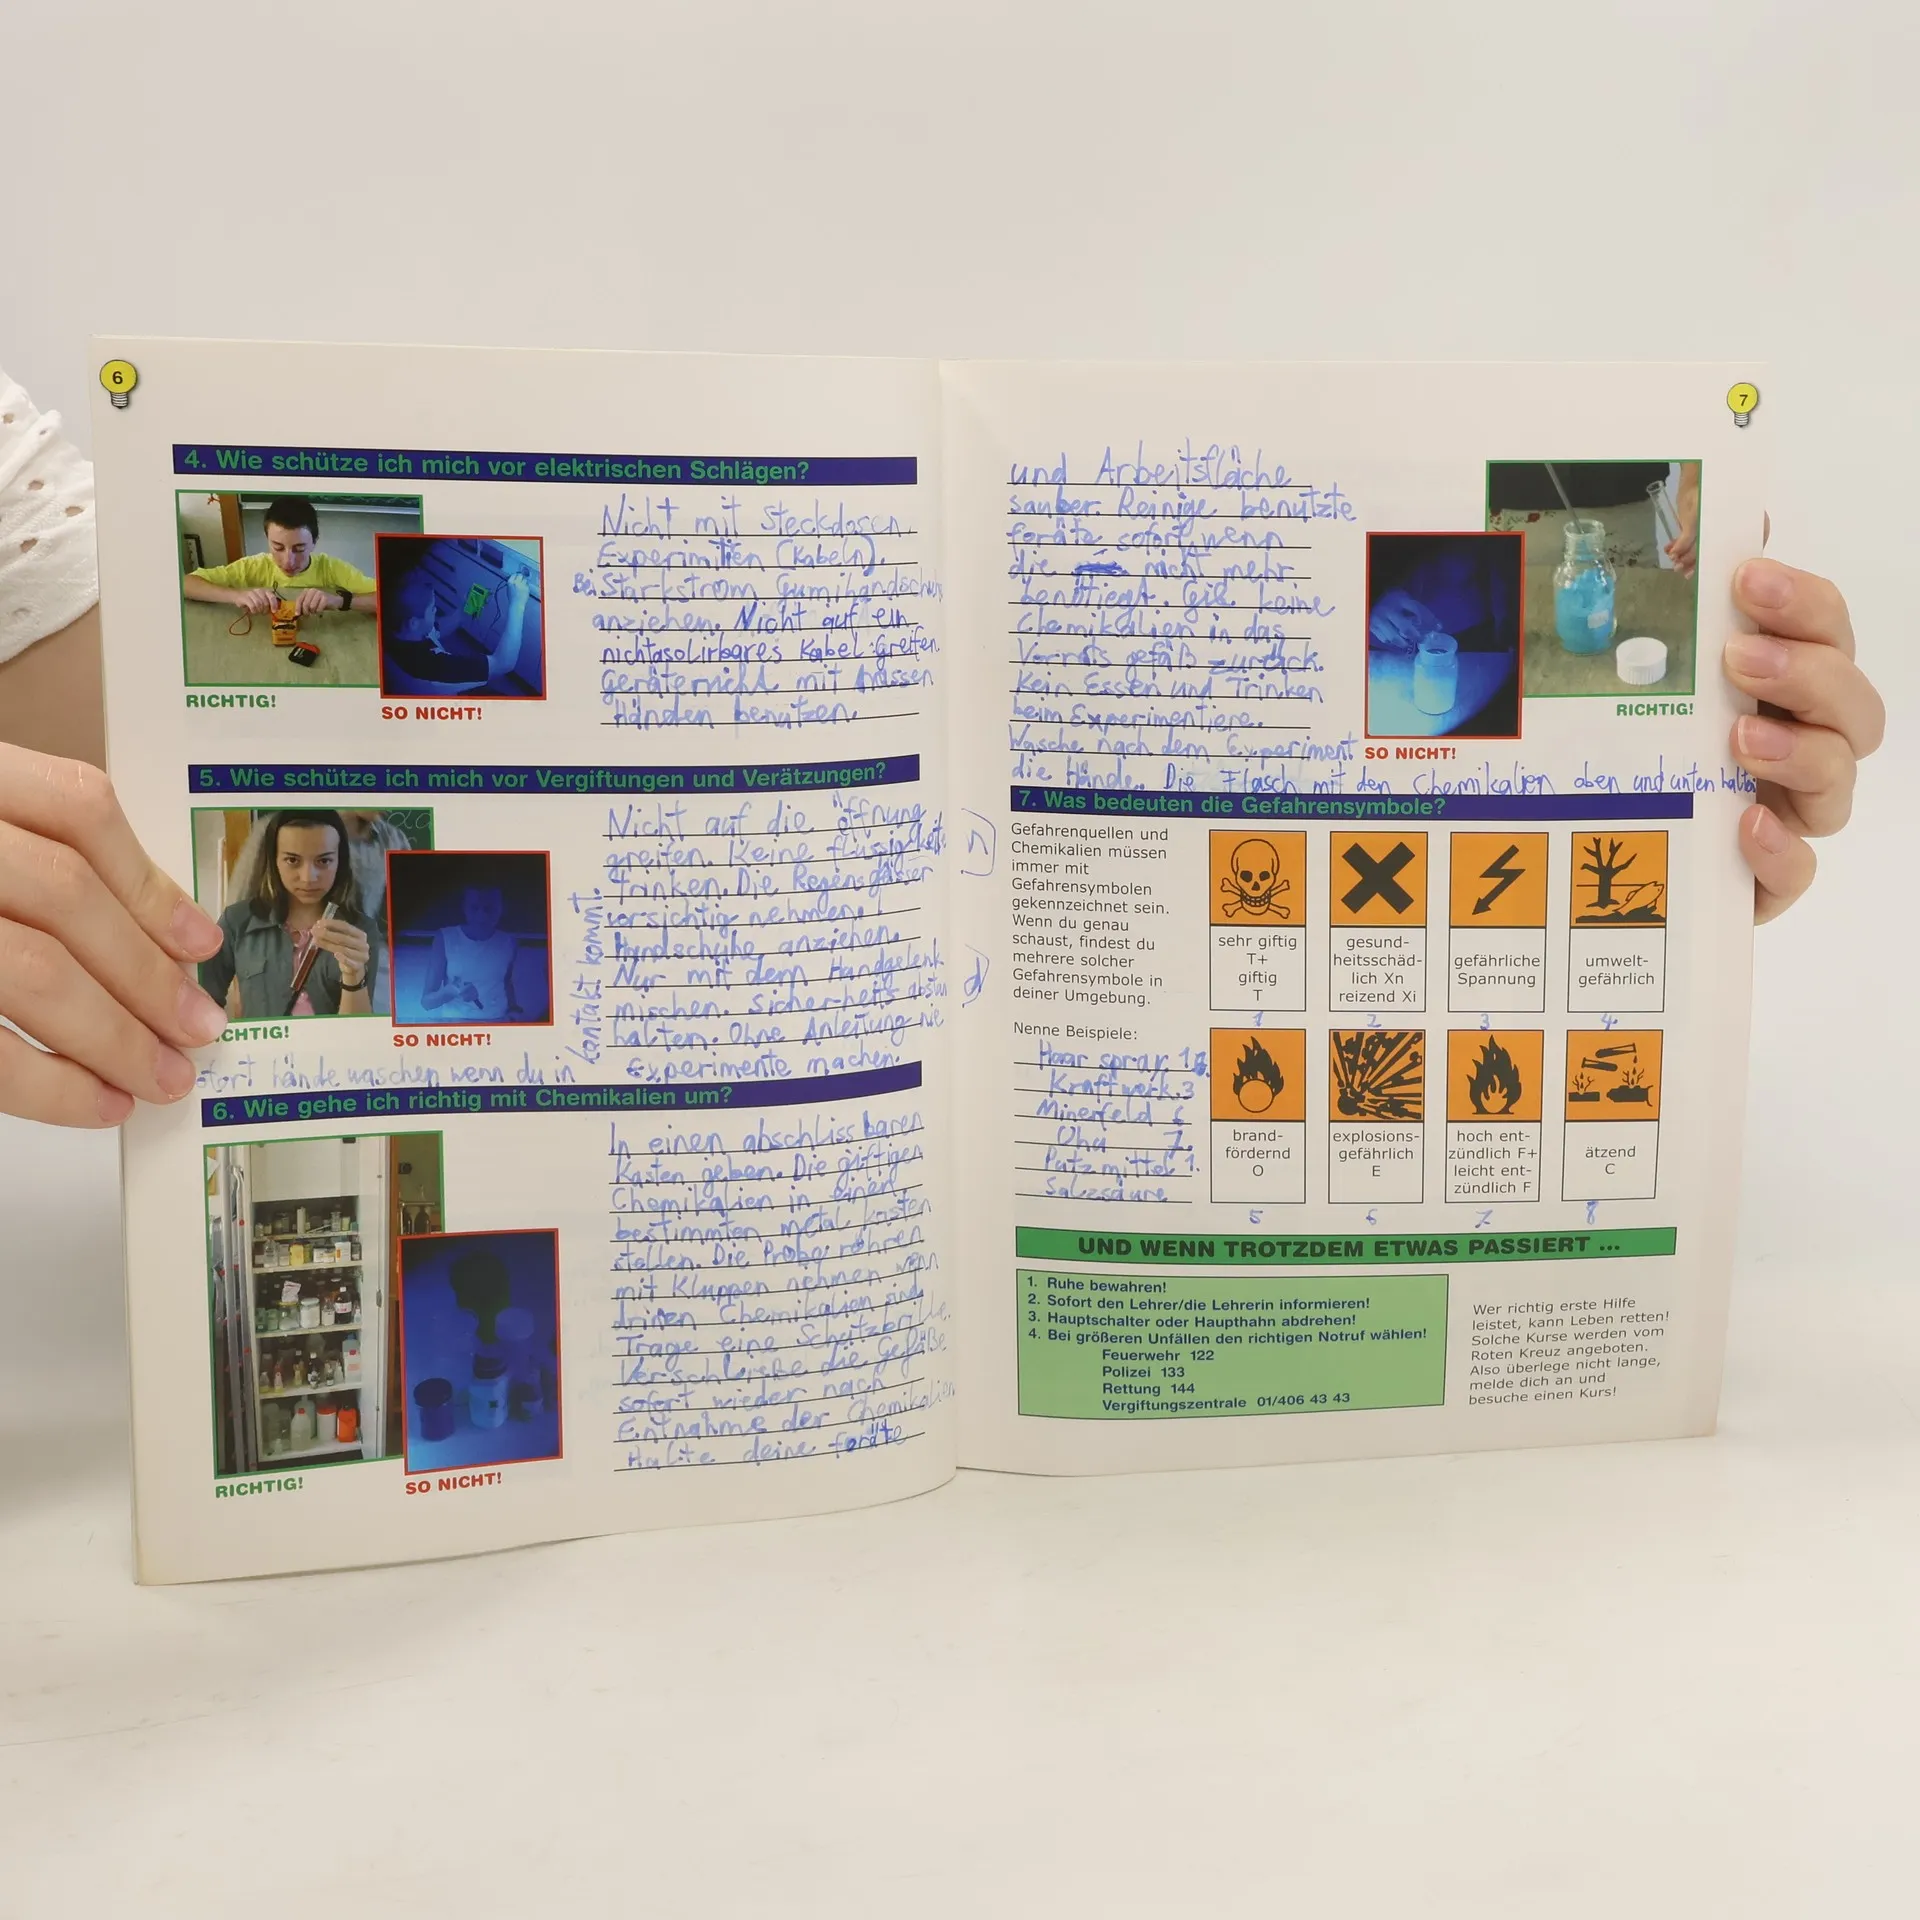 6
4. Wie schütze ich mich vor elektrischen Schlägen?
RICHTIG!
SO NICHT!
Nicht mit Steckdosen
Experimitien (Kabeln).
Bei Starkstrom Gumihandschuh
anziehen. Nicht auf ein
nichtasolirbares Kabel Greifen
geräte nicht mit nassen
Händen benutzen.
5. Wie schütze ich mich vor Vergiftungen und Verätzungen?
CHTIG!
SO NICHT!
Nicht auf die öffnung
greifen. Keine flüssigkeit
trinken. Die Regensgläser
vorsichtig nehmen!
Handschuhe anziehen.
Nur mit dem Handgelenk
mischen. Sicherheits abstan
halten. Ohne Anleitung nie
Experimente machen.
n
d
hände waschen wenn du in
kontakt kommt.
6. Wie gehe ich richtig mit Chemikalien um?
RICHTIG!
SO NICHT!
In einen abschlissbaren
Kasten geben. Die giftigen
Chemikalien in einen
bestimmten metal kasten
stellen. Die Probg röhren
mit Kluppen nehmen wenn
drinen Chemikalien sind
Trage eine Schutzbrille.
Verschließe die Gefäße
sofort wieder nach
Entnahme der Chemikalien
Halte deine
7
und Arbeitsfläche
sauber. Reinige benutzte
sofort, wenn
die nicht mehr
benötiegt. Gib keine
Chemikalien in das
Vorrats gefäß zurück.
Kein Essen und Trinken
beim Experimentiere.
Wasche nach dem Experiment
die Hände. Die Flasch mit den Chemikalien oben und unten halten
SO NICHT!
RICHTIG!
7. Was bedeuten die Gefahrensymbole?
Gefahrenquellen und
Chemikalien müssen
immer mit
Gefahrensymbolen
gekennzeichnet sein.
Wenn du genau
schaust, findest du
mehrere solcher
Gefahrensymbole in
deiner Umgebung.
Nenne Beispiele:
Haar spray.
Kraftwerk.3
Minenfeld 6
Uhu 7.
Putzmittel 1.
Salzsäure
sehr giftig
T+
giftig
T
1
gesund-
heitsschäd-
lich Xn
reizend Xi
2
gefährliche
Spannung
3
umwelt-
gefährlich
4.
brand-
fördernd
O
5
explosions-
gefährlich
E
6
hoch ent-
zündlich F+
leicht ent-
zündlich F
7
ätzend
C
8
UND WENN TROTZDEM ETWAS PASSIERT ...
1. Ruhe bewahren!
2. Sofort den Lehrer/die Lehrerin informieren!
3. Hauptschalter oder Haupthahn abdrehen!
4. Bei größeren Unfällen den richtigen Notruf wählen!
Feuerwehr 122
Polizei 133
Rettung 144
Vergiftungszentrale 01/406 43 43
Wer richtig erste Hilfe
leistet, kann Leben retten!
Solche Kurse werden vom
Roten Kreuz angeboten.
Also überlege nicht lange,
melde dich an und
besuche einen Kurs!